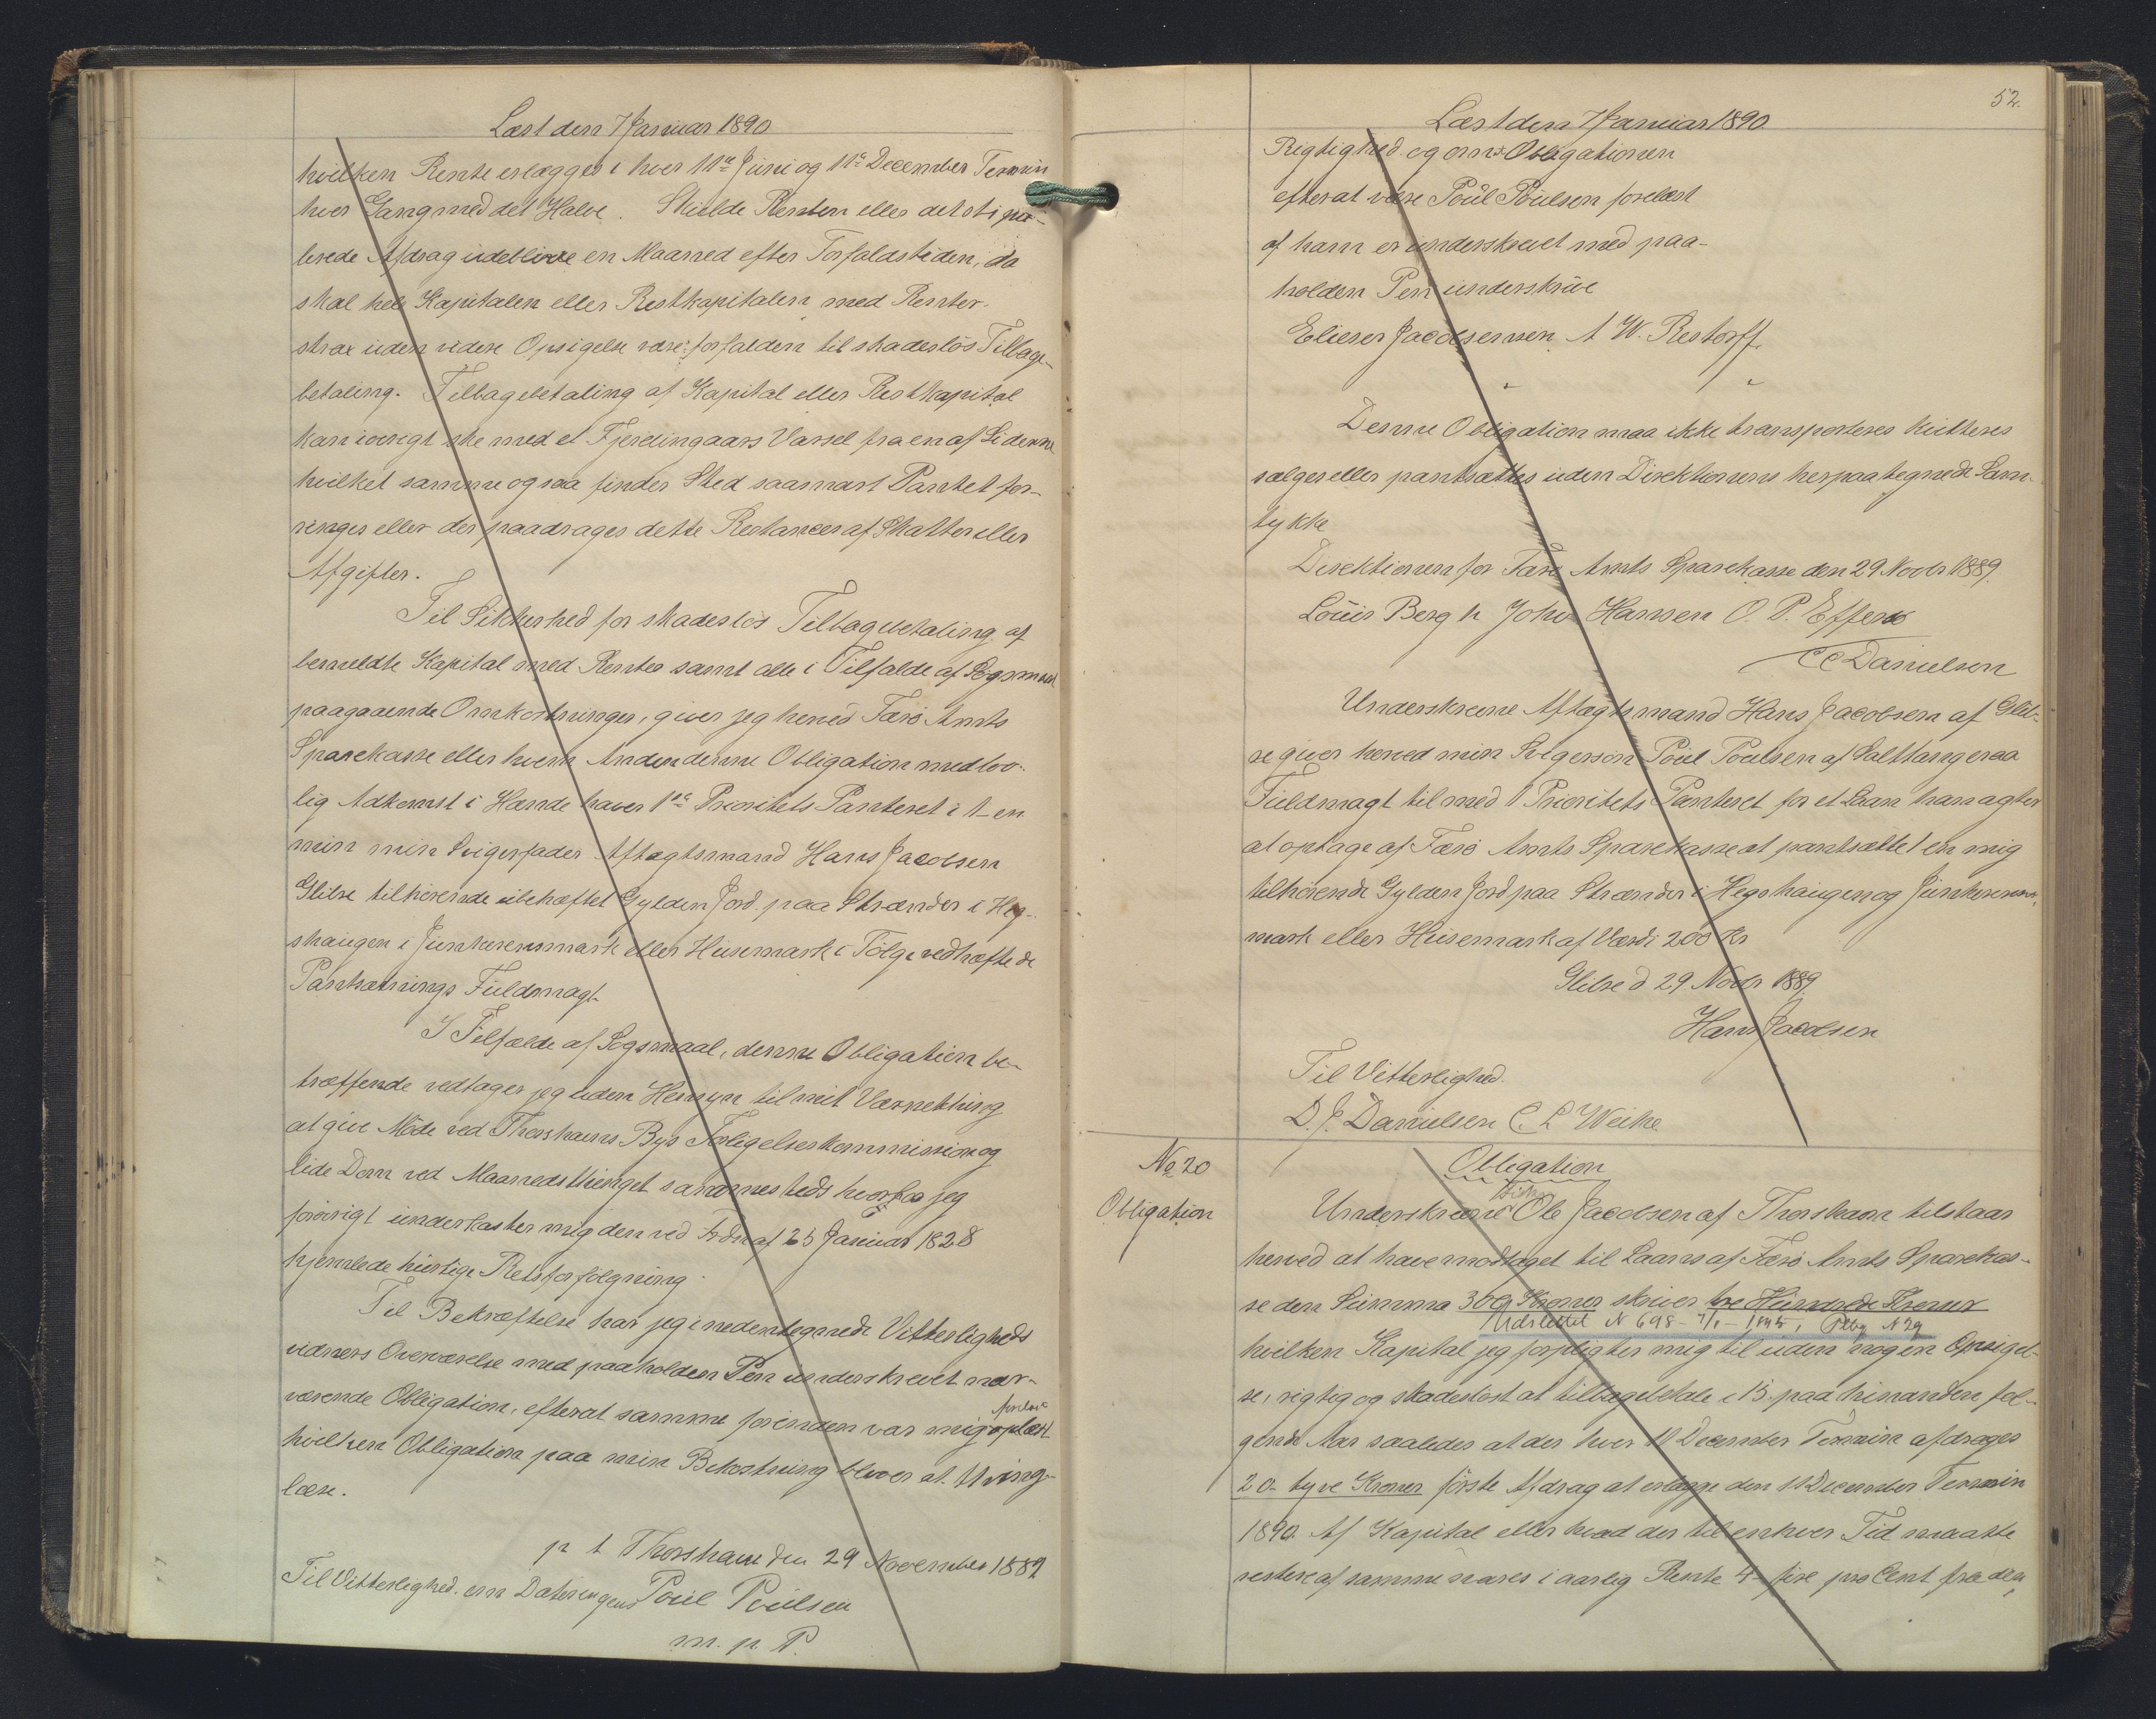 Læst den 7 Januar 1890
hvilken Rente erlægges i hver 11te Juni og 11te December Termin
hver Gang med det Halve. Skulde Renten eller det stipu-
lerede Afdrag udeblive en Maaned efter Forfaldstiden, da
skal hele Kapitalen eller Restkapitalen med Renter
strax uden videre Opsigelse være forfalden til skadeslös Tilbage-
betaling. Tilbagebetaling af Kapital eller Restkapital
kan iövrigt ske med et Fjerdingaars Varsel fra en af Siderne
hvilket samme ogsaa finder Sted saasnart Pantet for-
ringes eller der paadrages dette Restancer af Skatter eller
Afgifter.
Til Sikkerhed for skadeslös Tilbagebetaling af
bemeldte Kapital med Renter samt alle i Tilfælde af Søgsmaal
paagaaende Omkostninger, giver jeg herved Færö Amts
Sparekasse eller hvem Anden denne Obligation med lov-
lig Adkomst i Hænde haver 1ste Prioritets Panteret i 1 en
min min Svigerfader Aftægtsmand Hans Jacobsen
Glibre tilhörende ubehæftet Gylden Jord paa Strænder i Heg-
shaugen i Junkerensmark eller Husemark i Fölge vedhæftede
Pantsætnings Fuldmagt.
I Tilfælde af Søgsmaal, denne Obligation be-
træffende vedtager jeg uden Hensyn til mit Værnething
at give Möde ved Thorshavns Bys Forligelseskommission og
lide Dom ved Maanedsthinget sammesteds hvorfor jeg
forövrigt underkaster mig den ved Frdn af 25 Januar 1828
hjemlede hurtige Retsforfølgning.
Til Bekræftelse har jeg i nedentegnede Vitterligheds
vidners Overværelse med paaholden Pen underskrevet nær-
værende Obligation, efterat samme forinden var mig oplæst
forelæst
hvilken Obligation paa min Bekostning bliver at thing-
læse.
p t Thorshavn den 29 November 1889
Til Vitterlighed om Dateringens Poul Poulsen
m. p. P.
52.
Læst den 7 Januar 1890
Rigtighed og om Obligationen
efterat være Poul Poulsen forelæst
af ham er underskrevet med paa-
holden Pen underskrive
Elieser Jacobsen A W. Restorff
Denne Obligation maa ikke transporteres kvitteres
sælges eller pantsættes uden Direktionens herpaa tegnede Sam-
tykke
Direktionen for Færö Amts Sparekasse den 29 Novbr 1889.
Louis Bergh John Hansen O. P. Effersö
C C Danielsen
Underskrevne Aftægtsmand Hans Jacobsen af Glib-
re giver herved min Svigersön Poul Poulsen af Saltangeraa
Fuldmagt til med 1 Prioritets Panteret for et Laan han agter
at optage af Færö Amts Sparekasse at pantsætte 1 en mig
tilhörende Gylden Jord paa Strænder i Hegshaugen og Junkerens-
mark eller Husemark af Værdi 200 Kr
Glibre d 29 Novbr 1889.
Hans Jacobsen
Til Vitterlighed.
D. J. Danielsen C. L Weihe
No 20
Obligation
Obligation
Underskrevne Ole Jacobsen af Thorshavn tilstaar
herved at have modtaget til Laans af Færö Amts Sparekas-
se den Summa 300 Kroner skriver tre Hundrede Kroner
Udslettet N 698
hvilken Kapital jeg forpligter mig til uden nogen Opsigel-
se, rigtig og skadeslöst at tilbagebetale i 15 paa hinanden föl-
gende Aar saaledes at der hver 11 December Termin afdrages
20 tyve Kroner förste Afdrag at erlægge den 11 December Termin
1890. Af Kapital eller hvad der til enhver Tid maatte
restere af samme svares i aarlig Rente 4 fire pro Cent fra den